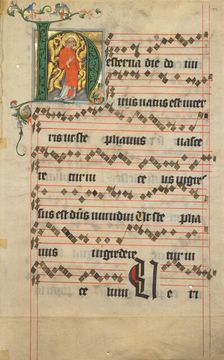 Hesterna die do mi
nus natus est in ter
ris ut ste phanus nasce
re tur in ce lis ingres
sus est dns mundum Ut ste pha
nus ingredere tur in
ce lum V e ri